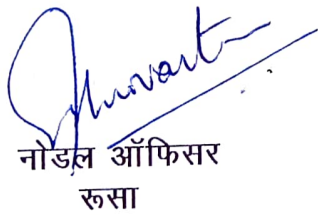 नोडल ऑफिसर
रूसा